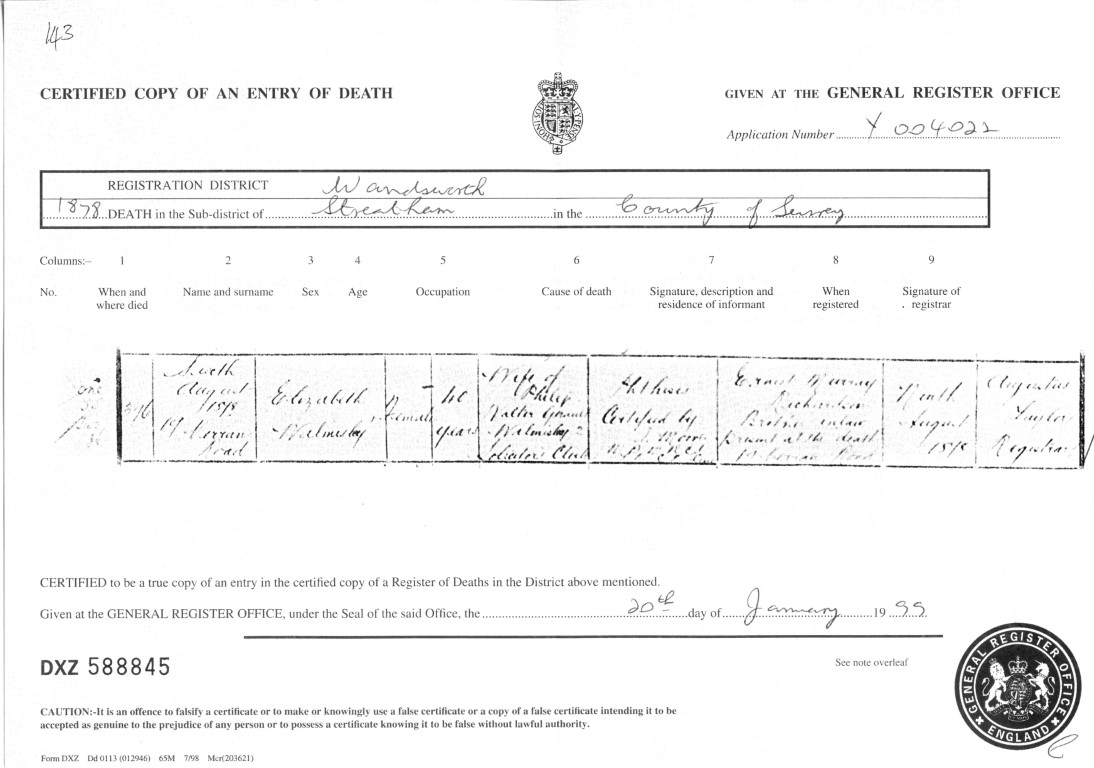 143
CERTIFIED COPY OF AN ENTRY OF DEATH
GIVEN AT THE GENERAL REGISTER OFFICE
Application Number Y 004022
REGISTRATION DISTRICT Wandsworth
1878 DEATH in the Sub-district of Streatham in the County of Surrey
Columns:- 1 2 3 4 5 6 7 8 9
No. When and where died Name and surname Sex Age Occupation Cause of death Signature, description and residence of informant When registered Signature of registrar
376
Sixth
August
1878
Road
Elizabeth
Walmesley
Female
40
years
Wife of
Philip
Walter
Walmesley
Solicitors Clerk
Phthisis
Certified by
Ernest Murray
Richardson
Brother in law
Present at the death
Road
Ninth
August
1878
Augustus
Taylor
Registrar
CERTIFIED to be a true copy of an entry in the certified copy of a Register of Deaths in the District above mentioned.
Given at the GENERAL REGISTER OFFICE, under the Seal of the said Office, the 20th day of January 1999
DXZ 588845
See note overleaf
CAUTION:-It is an offence to falsify a certificate or to make or knowingly use a false certificate or a copy of a false certificate intending it to be
accepted as genuine to the prejudice of any person or to possess a certificate knowing it to be false without lawful authority.
Form DXZ Dd 0113 (012946) 65M 7/98 Mcr(203621)
GENERAL REGISTER OFFICE
ENGLAND